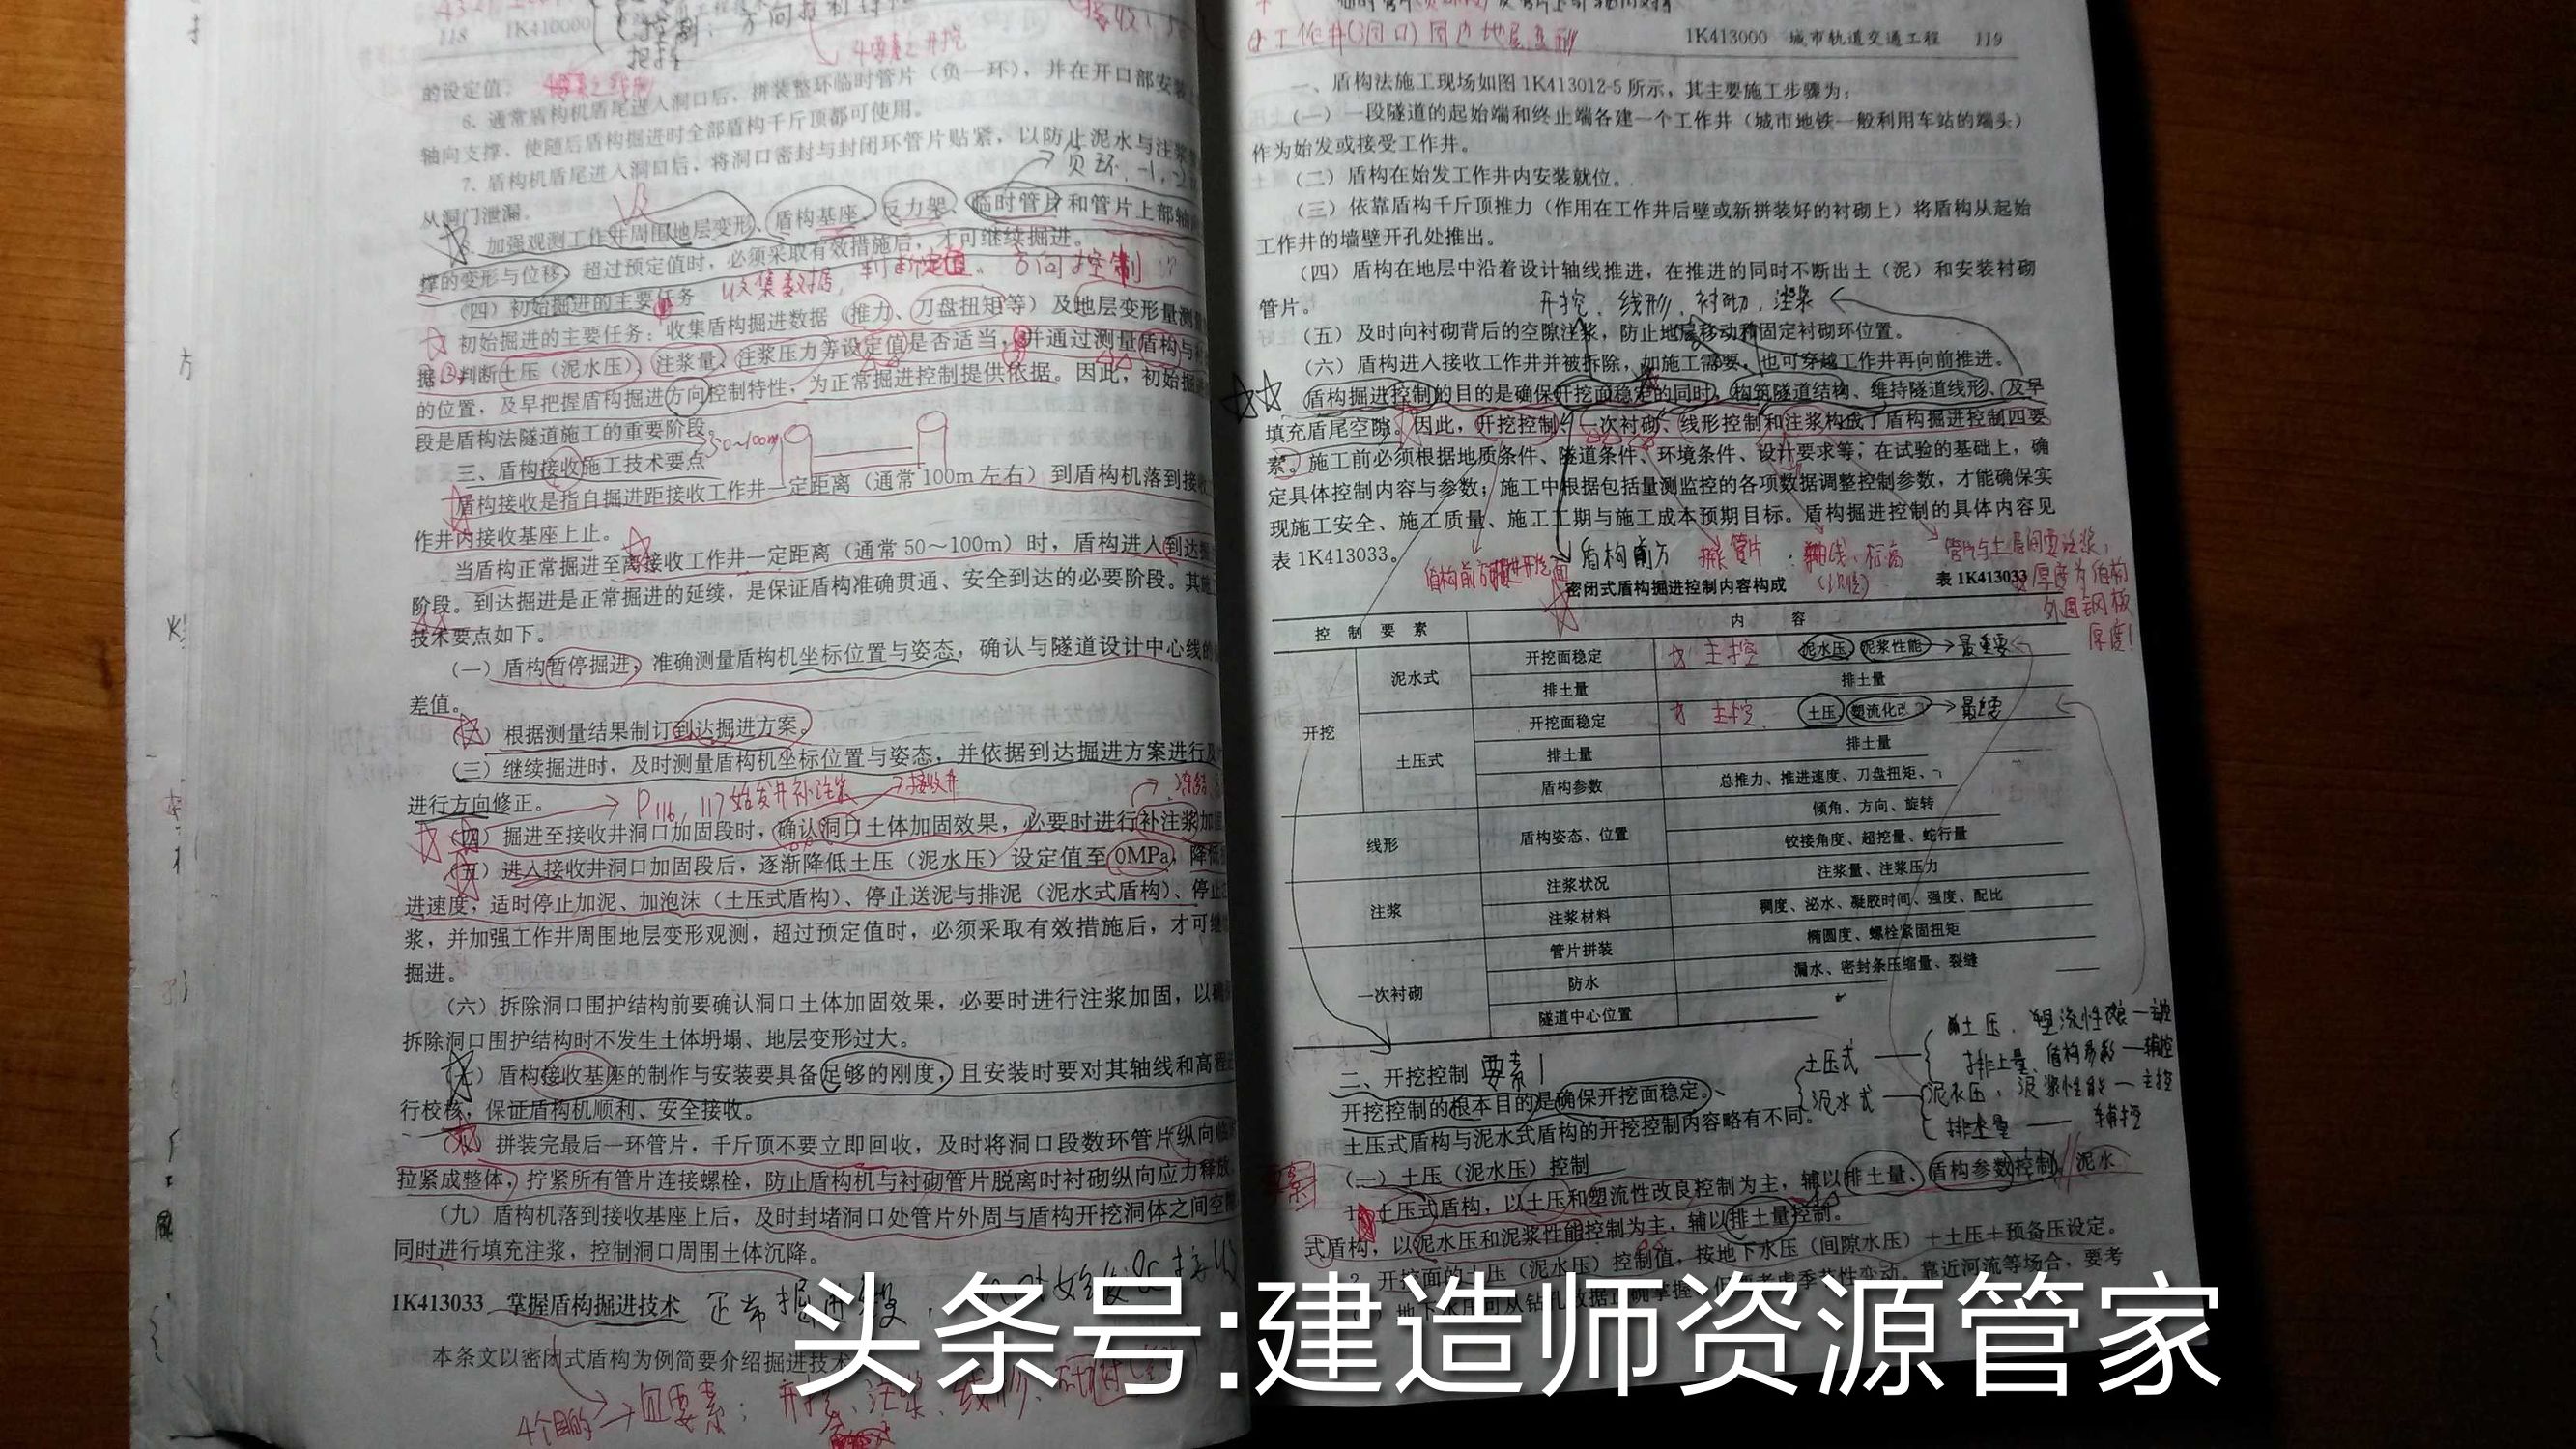 118 1K410000
的设定值;
6. 通常盾构机盾尾进入洞口后,拼装整环临时管片(负一环),并在开口部安装
轴向支撑,使随后盾构掘进时全部盾构千斤顶都可使用。
7. 盾构机盾尾进入洞口后,将洞口密封与封闭环管片贴紧,以防止泥水与注浆
从洞门泄漏。
负环,-1,-2
8. 加强观测工作井周围地层变形、盾构基座、反力架、临时管片和管片上部轴
撑的变形与位移,超过预定值时,必须采取有效措施后,才可继续掘进。
收集数据,判断定值。方向控制
(四)初始掘进的主要任务
初始掘进的主要任务:收集盾构掘进数据(推力、刀盘扭矩等)及地层变形量测量
据,判断土压(泥水压)、注浆量、注浆压力等设定值是否适当,并通过测量盾构与
的位置,及早把握盾构掘进方向控制特性,为正常掘进控制提供依据。因此,初始掘
段是盾构法隧道施工的重要阶段。
50~100m
三、盾构接收施工技术要点
盾构接收是指自掘进距接收工作井一定距离(通常100m左右)到盾构机落到接收
作井内接收基座上止。
当盾构正常掘进至离接收工作井一定距离(通常50~100m)时,盾构进入到达
阶段。到达掘进是正常掘进的延续,是保证盾构准确贯通、安全到达的必要阶段。其施
技术要点如下。
(一)盾构暂停掘进,准确测量盾构机坐标位置与姿态,确认与隧道设计中心线的
差值。
(二)根据测量结果制订到达掘进方案。
(三)继续掘进时,及时测量盾构机坐标位置与姿态,并依据到达掘进方案进行及
进行方向修正。
P116,117始发井补注浆 → 接收井
(四)掘进至接收井洞口加固段时,确认洞口土体加固效果,必要时进行补注浆加
(五)进入接收井洞口加固段后,逐渐降低土压(泥水压)设定值至0MPa,降低
进速度,适时停止加泥、加泡沫(土压式盾构)、停止送泥与排泥(泥水式盾构)、停止
浆,并加强工作井周围地层变形观测,超过预定值时,必须采取有效措施后,才可继
掘进。
(六)拆除洞口围护结构前要确认洞口土体加固效果,必要时进行注浆加固,以确
拆除洞口围护结构时不发生土体坍塌、地层变形过大。
(七)盾构接收基座的制作与安装要具备足够的刚度,且安装时要对其轴线和高程
行校核,保证盾构机顺利、安全接收。
(八)拼装完最后一环管片,千斤顶不要立即回收,及时将洞口段数环管片纵向临
拉紧成整体,拧紧所有管片连接螺栓,防止盾构机与衬砌管片脱离时衬砌纵向应力释放
(九)盾构机落到接收基座上后,及时封堵洞口处管片外周与盾构开挖洞体之间空
同时进行填充注浆,控制洞口周围土体沉降。
1K413033 掌握盾构掘进技术 正常掘进
本条文以密闭式盾构为例简要介绍掘进技术
4个目的 → 四要素:开挖、注浆、线形、衬砌
1K413000 城市轨道交通工程 119
一、盾构法施工现场如图1K413012-5所示,其主要施工步骤为:
(一)一段隧道的起始端和终止端各建一个工作井(城市地铁一般利用车站的端头)
作为始发或接受工作井。
(二)盾构在始发工作井内安装就位。
(三)依靠盾构千斤顶推力(作用在工作井后壁或新拼装好的衬砌上)将盾构从起始
工作井的墙壁开孔处推出。
(四)盾构在地层中沿着设计轴线推进,在推进的同时不断出土(泥)和安装衬砌
管片。
开挖、线形、衬砌、注浆
(五)及时向衬砌背后的空隙注浆,防止地层移动和固定衬砌环位置。
(六)盾构进入接收工作井并被拆除,如施工需要,也可穿越工作井再向前推进。
盾构掘进控制的目的是确保开挖面稳定的同时,构筑隧道结构、维持隧道线形、及早
填充盾尾空隙。因此,开挖控制、一次衬砌、线形控制和注浆构成了盾构掘进控制四要
素。施工前必须根据地质条件、隧道条件、环境条件、设计要求等,在试验的基础上,确
定具体控制内容与参数;施工中根据包括量测监控的各项数据调整控制参数,才能确保实
现施工安全、施工质量、施工工期与施工成本预期目标。盾构掘进控制的具体内容见
表1K413033。
盾构前方 管片 轴线、标高
管片与土层间要注浆,
厚度为盾构
外围钢板
厚度!
密闭式盾构掘进控制内容构成 表1K413033
控制要素 内容
开挖 泥水式 开挖面稳定 主控 泥水压 泥浆性能 → 最重要
排土量 排土量
土压式 开挖面稳定 主控 土压 塑流化改 →
排土量 排土量
盾构参数 总推力、推进速度、刀盘扭矩、
线形 盾构姿态、位置 倾角、方向、旋转
铰接角度、超挖量、蛇行量
注浆 注浆状况 注浆量、注浆压力
注浆材料 稠度、泌水、凝胶时间、强度、配比
一次衬砌 管片拼装 椭圆度、螺栓紧固扭矩
防水 漏水、密封条压缩量、裂缝
隧道中心位置
二、开挖控制 要素1
开挖控制的根本目的是确保开挖面稳定。
土压式盾构与泥水式盾构的开挖控制内容略有不同。
土压式 土压、塑流性改良—主控
排土量、盾构参数—辅控
泥水式 泥水压、泥浆性能—主控
排土量——辅控
(一)土压(泥水压)控制
1. 土压式盾构,以土压和塑流性改良控制为主,辅以排土量、盾构参数控制。泥水
式盾构,以泥水压和泥浆性能控制为主,辅以排土量控制。
2. 开挖面的土压(泥水压)控制值,按地下水压(间隙水压)+土压+预备压设定。
头条号:建造师资源管家